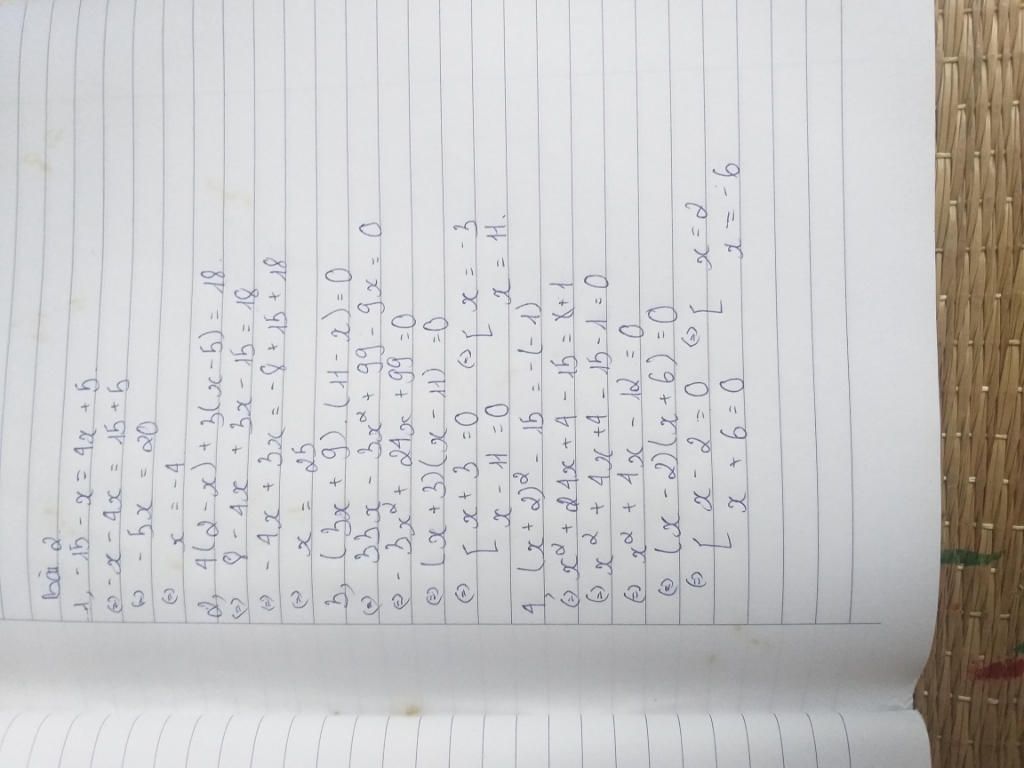 bài 2
1, -15 - x = 4x + 5
⇔ -x - 4x = 15 + 5
⇔ -5x = 20
⇔ x = -4
2, 4(2 - x) + 3(x - 5) = 18
⇔ 8 - 4x + 3x - 15 = 18
⇔ -4x + 3x = -8 + 15 + 18
⇔ x = 25
3, (3x + 9) . (11 - x) = 0
⇔ 33x - 3x² + 99 - 9x = 0
⇔ -3x² + 24x + 99 = 0
⇔ (x + 3)(x - 11) = 0
⇔ [ x + 3 = 0 ⇔ [ x = -3
x - 11 = 0 x = 11.
4, (x + 2)² - 15 = -(-1)
⇔ x² + 24x + 4 - 15 = x + 1
⇔ x² + 4x + 4 - 15 - 1 = 0
⇔ x² + 4x - 12 = 0
⇔ (x - 2)(x + 6) = 0
⇔ [ x - 2 = 0 ⇔ [ x = 2
x + 6 = 0 x = -6